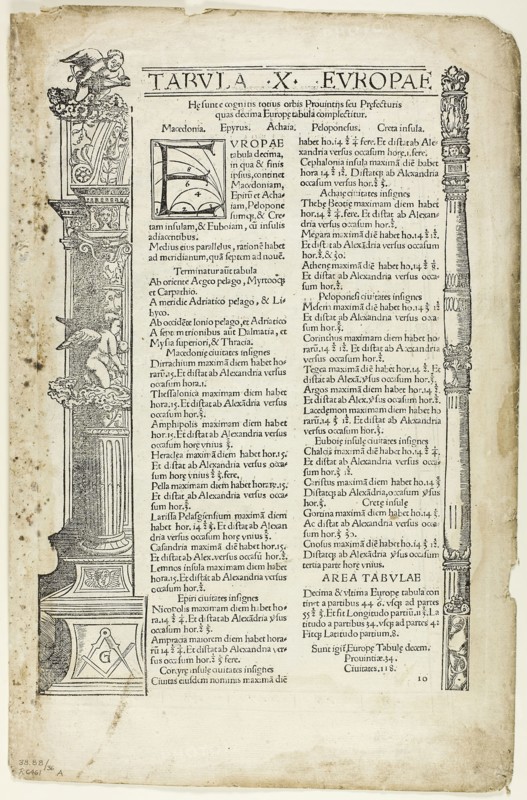 TABVLA ·X· EVROPAE
Hę sunt e cognitis totius orbis Prouintijs seu Pręfecturis
quas decima Europę tabula complectitur.
Macedonia. Epyrus. Achaia. Peloponesus. Creta insula.
EVROPAE
tabula decima,
in qua & finis
ipsius, continet
Macedoniam,
Epirũ et Acha
iam, Pelopone
sumq;, & Cre
tam insulam, & Euboiam, cũ insulis
adiacentibus.
Medius eius parallelus, rationẽ habet
ad meridianum, quã septem ad nouẽ.
Terminatur aũt tabula
Ab oriente Aegeo pelago, Myrtooq;
et Carpathio.
A meridie Adriatico pelago, & Li
byco.
Ab occidẽte Ionio pelago, et Adriatico
A septẽ mtrionibus aũt Dalmatia, et
Mysia superiori, & Thracia.
Macedonię ciuitates insignes
Dirrachium maximam diem habet ho
rarũ.15. Et distat ab Alexandria versus
occasum hora.1.
Thessalonica maximam diem habet
hora.15. Et distat ab Alexãdria versus
occasum hor.
Amphipolis maximam diem habet
hor.15. Et distat ab Alexandria versus
occasum horę vnius
Heraclea maximã diem habet hor.15.
Et distat ab Alexandria versus occa
sum horę vnius fere.
Pella maximam diem habet horarũ.15.
Et distat ab Alexandria versus occa
sum hor.
Larissa Pelasgiensium maximã diem
habet hor. 14 Et distat ab Alexan
dria versus occasum horę vnius
Casandria maximã diẽ habet hor.15.
Et distat ab Alex. versus occasũ hor.
Lemnos insula maximam diem habet
hora.15. Et distat ab Alexandria versus
occasum horę vnius.
Epiri ciuitates insignes
Nicopolis maximam diem habet ho
ra.14 Et distat ab Alexãdria ỹsus
occasum hor.
Ampracia maiorem diem habet hora
rũ 14 Et distat ab Alexandria ver
sus occasum hor. fere.
Corcyrę insulę ciuitates insignes
Ciuitas eiusdem nominis maximã diẽ
habet ho.14 fere. Et distat ab Ale
xandria versus occasum horę.1. fere.
Cephalonia insula maximã diẽ habet
hora 14 Distatq; ab Alexandria
occasum versus hor.
Achaię ciuitates insignes
Thebę Beotię maximam diem habet
hor.14 fere. Et distat ab Alexan
dria versus occasum hor.
Megara maximã diẽ habet ho.14
Et distat ab Alexandria versus
occasum hor. & 30.
Athenę maximã diẽ habet ho.14
Et distat ab Alexandria versus occa
sum hor.
Peloponesi ciuitates insignes
Mesena maximã diẽ habet ho.14
Et distat ab Alexandria versus occa
sum hor.
Corinthus maximam diem habet ho
rarũ.14 Et distat ab Alexandria
versus occasum hor.
Tegea maximã diẽ habet hor.14 Et
distat ab Alexã. ỹsus occasum hor.
Argos maximã diem habet hor.14
Et distat ab Alex. ỹsus occasum hor.
Lacedęmon maximam diem habet ho
rarũ.14 Et distat ab Alexandria
versus occasum hor.
Euboię insulę ciuitates insignes
Chalcis maximã diẽ habet ho.14
Et distat ab Alexandria versus occa
sum hor.
Caristus maximã diem habet ho.14
Distatq; ab Alexãdria, occasum ỹsus
hor.
Cretę insulę
Gortina maximã diem habet ho.14
Ac distat ab Alexandria versus occa
sum hor. 30.
Cnosus maximã diem habet ho.14
Distatq; ab Alexãdria ỹsus occasum
tertia parte horę vnius.
AREA TABVLAE
Decima & vltima Europę tabula con
tinet a partibus 44 6. vsq; ad partes
55 Et sic Longitudo partiũ.11 La
titudo a partibus 34. vsq; ad partes 42
Fitq; Latitudo partium.8.
Sunt igit̃ Europę Tabulę decem.
Prouintiæ.34.
Ciuitates.118.
10
G
38.88/36
RX0461
A